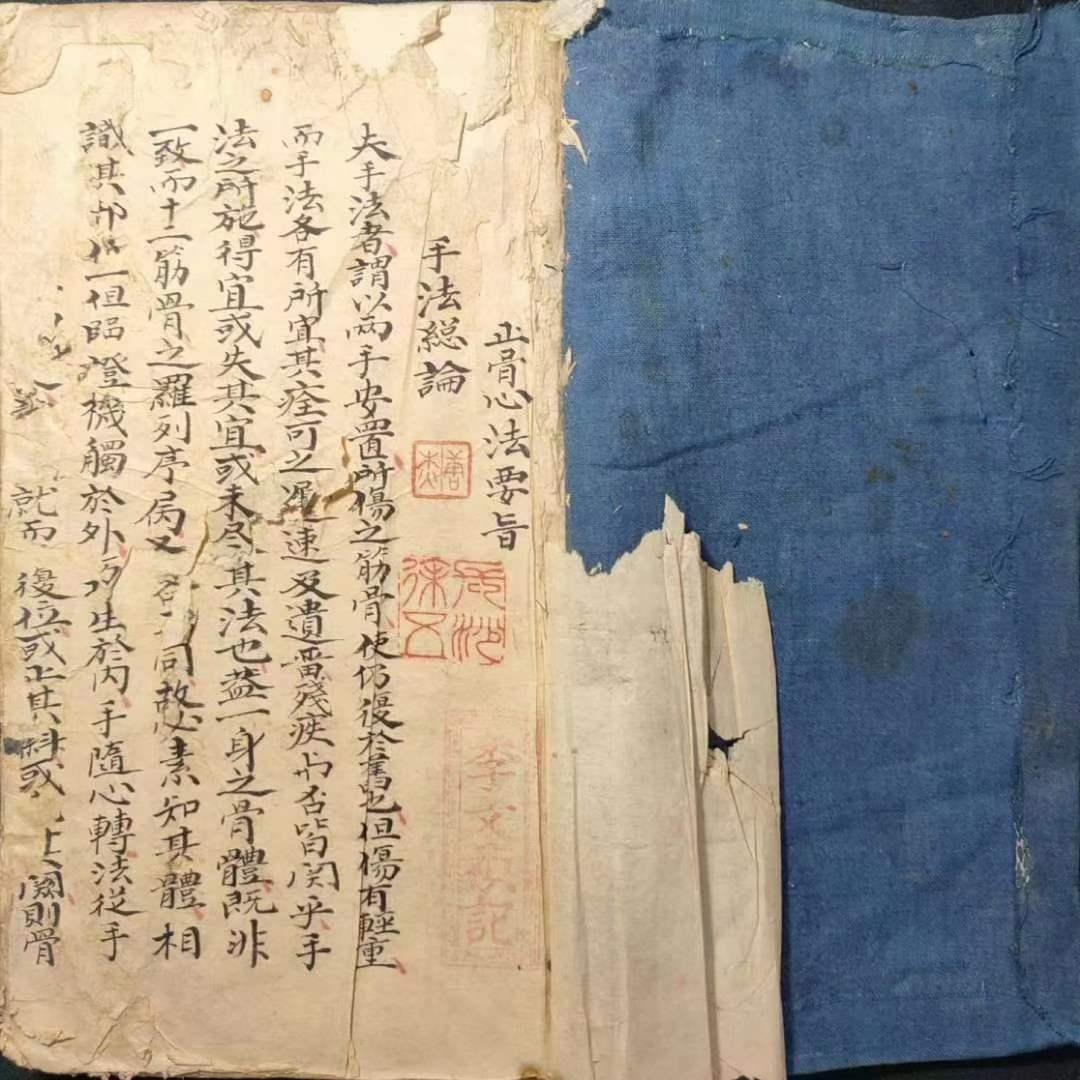 正骨心法要旨
手法総論
夫手法者謂以兩手安置所傷之筋骨使仍復於舊也但傷有輕重
而手法各有所宜其痊可之遲速及遺畱殘疾与否皆関乎手
法之所施得宜或失其宜或未尽其法也蓋一身之骨體既非
一致而十二筋骨之羅列序属又同故必素知其體相
識其部位一但臨證機觸於外巧生於內手隨心轉法從手
就而復位或正其斜或闕則骨
李文記